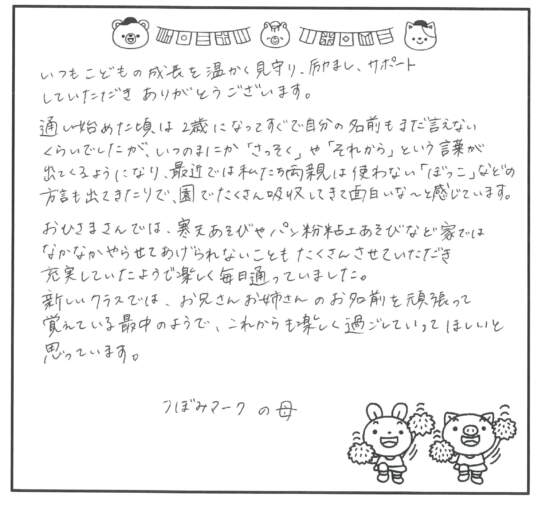 いつもこどもの成長を温かく見守り、励まし、サポート
していただきありがとうございます。
通い始めた頃は2歳になってすぐで自分の名前もまだ言えない
くらいでしたが、いつのまにか「さっそく」や「それから」という言葉が
出てくるようになり、最近では私たち両親は使わない「ぼっこ」などの
方言も出てきたりで、園でたくさん吸収してきて面白いな〜と感じています。
おひさまさんでは、寒天あそびやパン粉粘土あそびなど家では
なかなかやらせてあげられないこともたくさんさせていただき
充実していたようで楽しく毎日通っていました。
新しいクラスでは、お兄さんお姉さんのお名前を頑張って
覚えている最中のようで、これからも楽しく過ごしていってほしいと
思っています。
つぼみマークの母